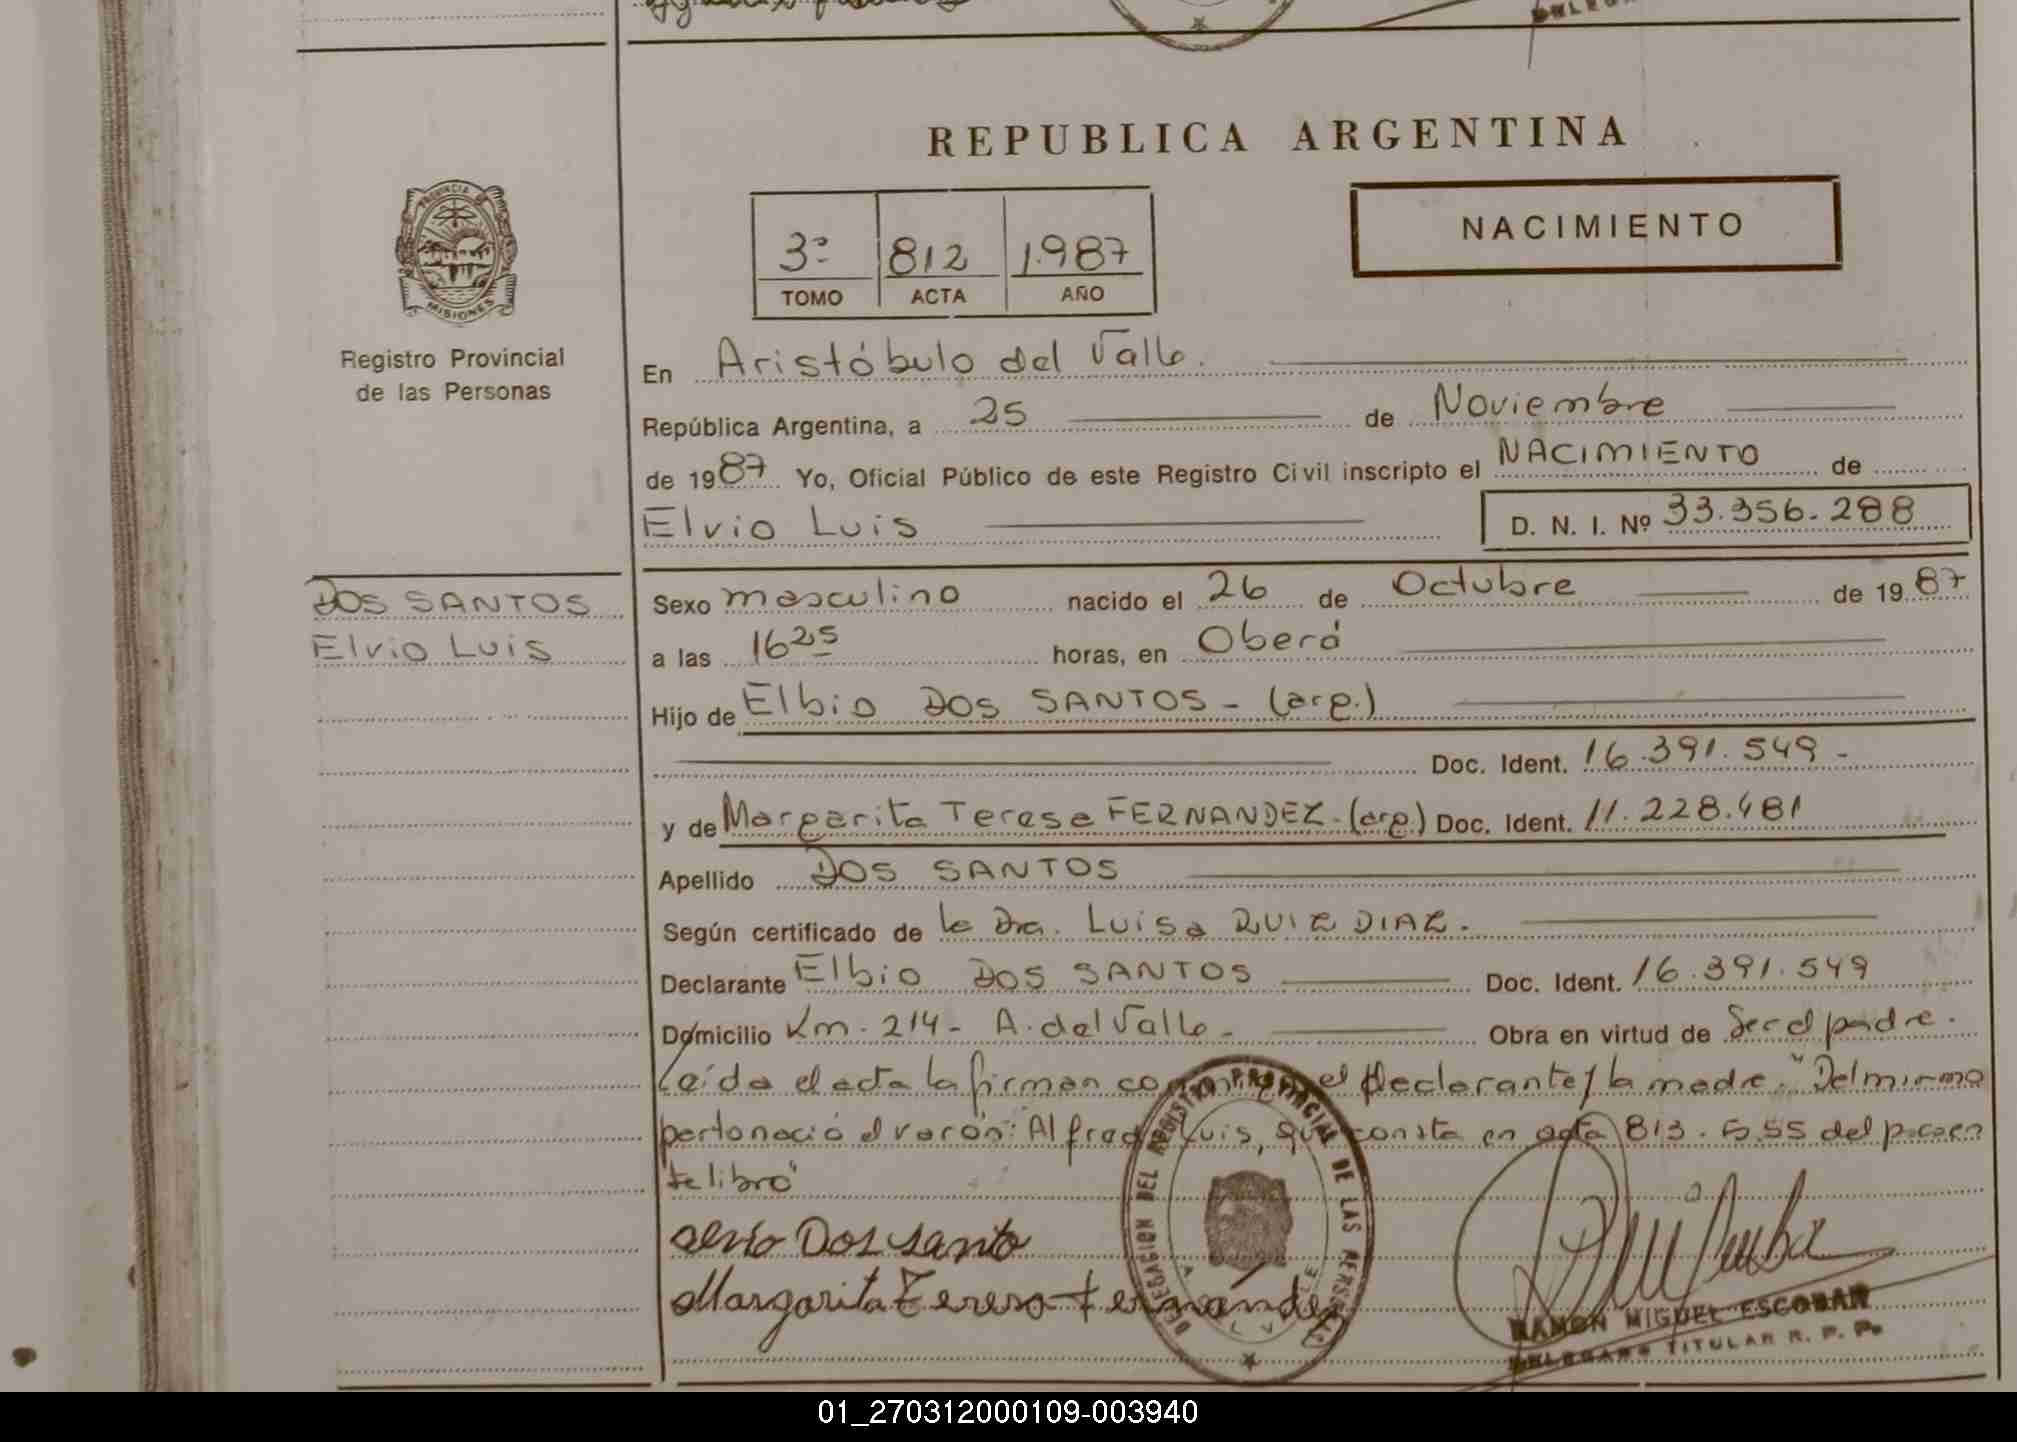 REPUBLICA ARGENTINA
PROVINCIA DE
MISIONES
Registro Provincial
de las Personas
3º 812 1.987
TOMO ACTA AÑO
NACIMIENTO
En Aristóbulo del Valle.
República Argentina, a 25 de Noviembre
de 1987 Yo, Oficial Público de este Registro Civil inscripto el NACIMIENTO de
Elvio Luis D. N. I. Nº 33.356.288
DOS SANTOS
Elvio Luis
Sexo masculino nacido el 26 de Octubre de 1987
a las 16 25 horas, en Oberá
Hijo de Elbio DOS SANTOS - (arg.)
Doc. Ident. 16.391.549 -
y de Margarita Teresa FERNANDEZ. (arg.) Doc. Ident. 11.228.481
Apellido DOS SANTOS
Según certificado de la Dra. Luisa RUIZ DIAZ.
Declarante Elbio DOS SANTOS Doc. Ident. 16.391.549
Domicilio Km. 214 - A. del Valle - Obra en virtud de Ser el padre.
Leída el acta la firman conmigo el declarante y la madre. "Del mismo
parto nació el varón: Alfredo Luis, que consta en acta 813. del presen
te libro"
elvio Dos santo
Margarita Teresa Fernandez
DELEGACION DEL REGISTRO PROVINCIAL DE LAS PERSONAS
RAMON MIGUEL ESCOBAR
DELEGADO TITULAR R. P. P.
01_270312000109-003940